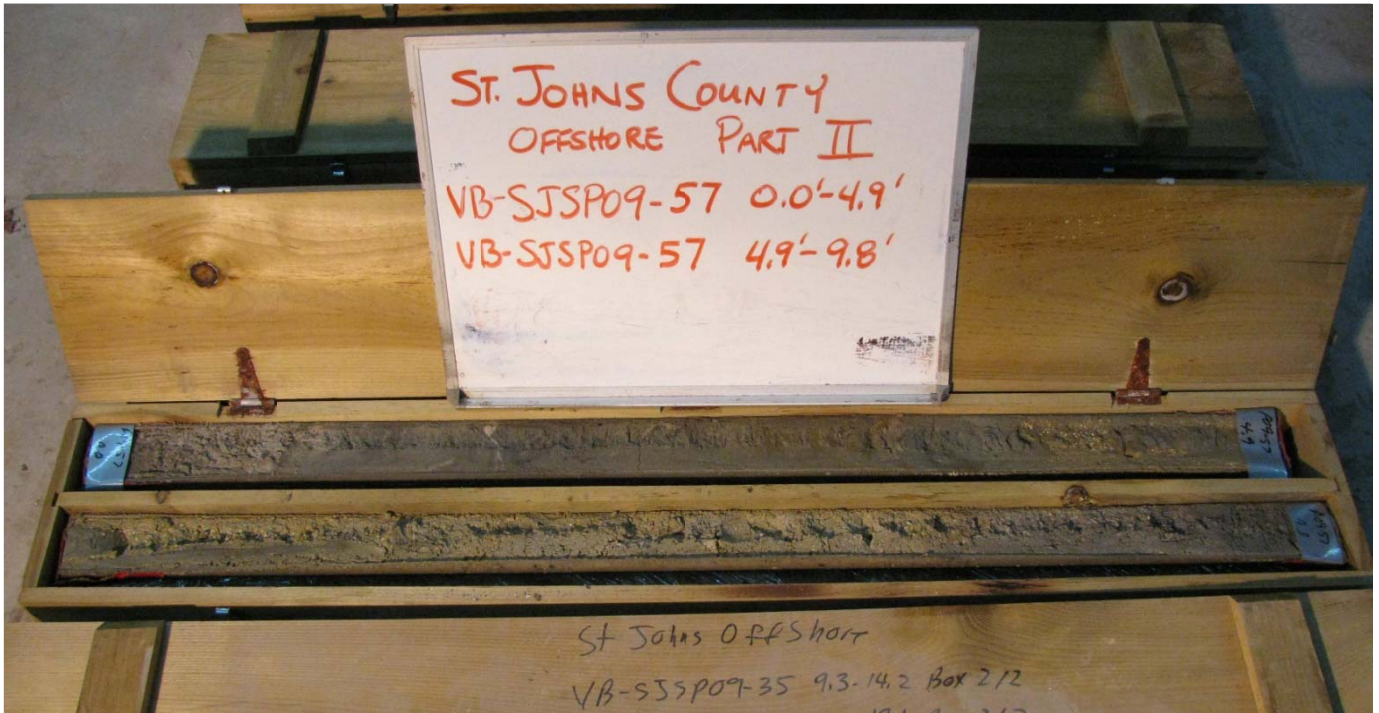 ST. JOHNS COUNTY
OFFSHORE PART II
VB-SJSP09-57 0.0'-4.9'
VB-SJSP09-57 4.9'-9.8'
0.0
P09-57
4.9
St Johns OffShore
VB-SJSP09-35 9.3-14.2 Box 2/2